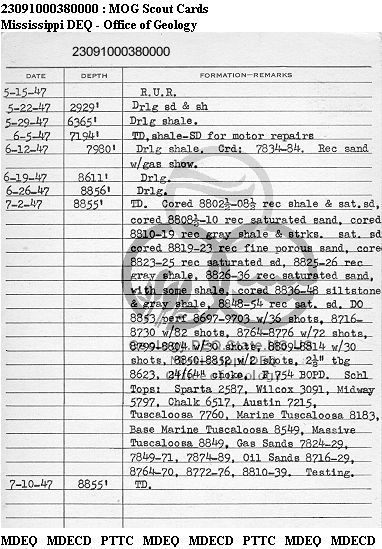 23091000380000 : MOG Scout Cards
Mississippi DEQ - Office of Geology
23091000380000
DATE DEPTH FORMATION—REMARKS
5-15-47 R.U.R.
5-22-47 2929' Drlg sd & sh
5-29-47 6365' Drlg shale.
6-5-47 7194' TD,shale-SD for motor repairs
6-12-47 7980' Drlg shale. Crd: 7834-84. Rec sand
w/gas show.
6-19-47 8611' Drlg.
6-26-47 8856' Drlg.
7-2-47 8855' TD. Cored 8802½-08½ rec shale & sat.sd,
cored 8808½-10 rec saturated sand, cored
8810-19 rec gray shale & strks. sat. sd
cored 8819-23 rec fine porous sand, core
8823-25 rec saturated sd, 8825-26 rec
gray shale, 8826-36 rec saturated sand,
with some shale, cored 8836-48 siltstone
& gray shale, 8848-54 rec sat. sd. DO
8853 perf 8697-9703 w/36 shots, 8716-
8730 w/82 shots, 8764-8776 w/72 shots,
8799-8804 w/30 shots, 8809-8814 w/30
shots, 8850-8852 w/2 shots, 2½" tbg
8623, 24/64" choke, F 754 BOPD. Schl
Tops: Sparta 2587, Wilcox 3091, Midway
5797, Chalk 6517, Austin 7215,
Tuscaloosa 7760, Marine Tuscaloosa 8183,
Base Marine Tuscaloosa 8549, Massive
Tuscaloosa 8849, Gas Sands 7824-29,
7849-71, 7874-89, Oil Sands 8716-29,
8764-70, 8772-76, 8810-39. Testing.
7-10-47 8855' TD.
MDEQ MDECD PTTC MDEQ MDECD PTTC MDEQ MDECD